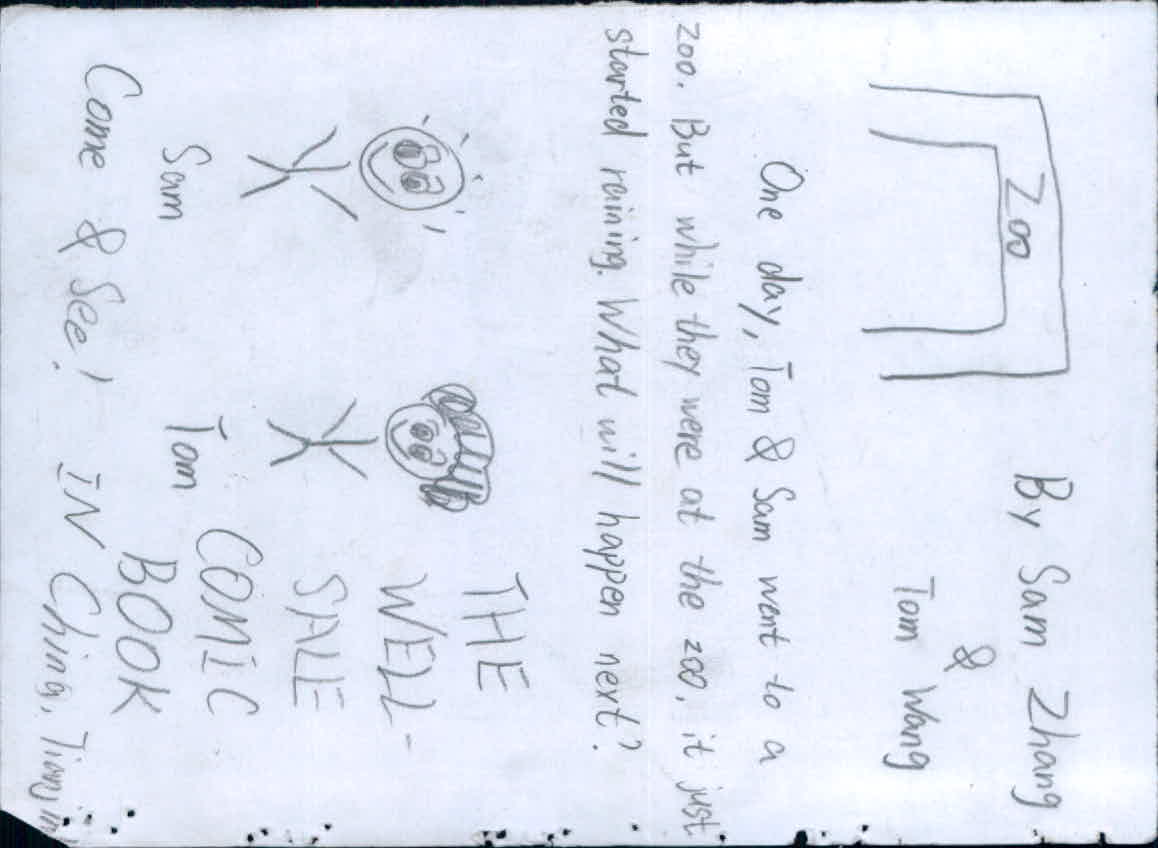 Zoo
By Sam Zhang
&
Tom Wang
One day, Tom & Sam went to a
zoo. But while they were at the zoo, it just
started raining. What will happen next?
THE
WELL-
SALE
COMIC
BOOK
IN China, Tianjin
Sam
Tom
Come & See!